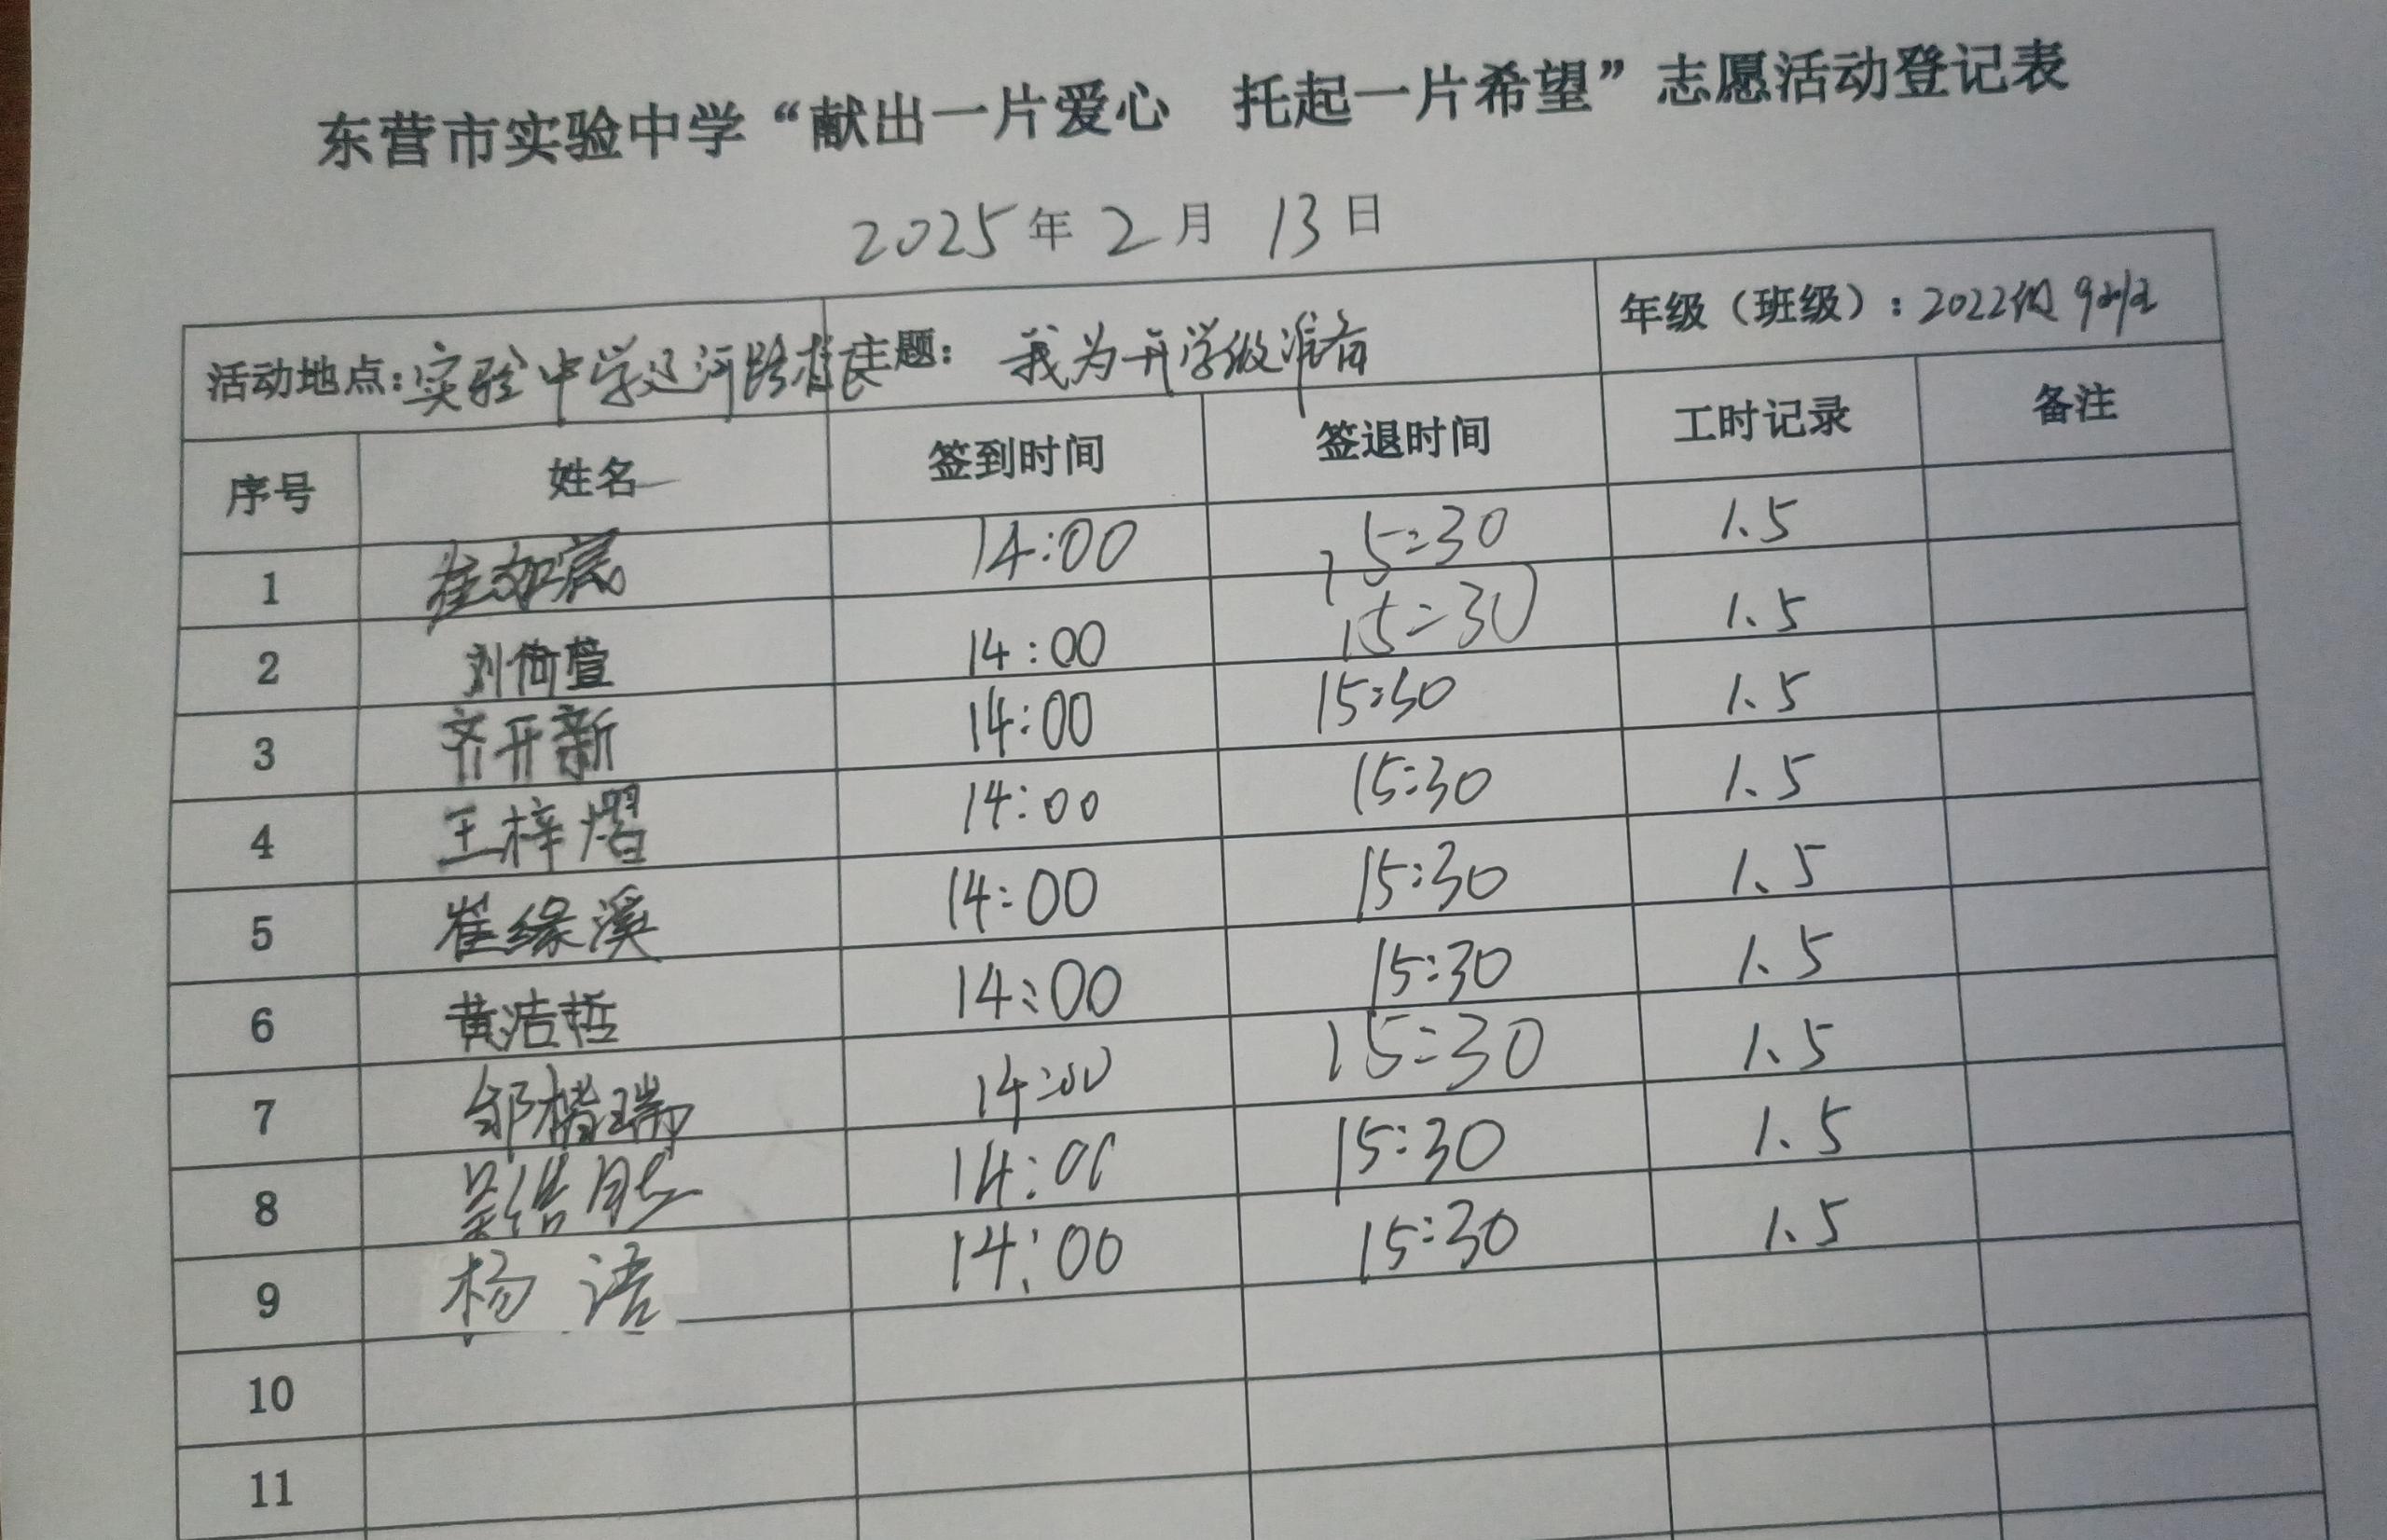 东营市实验中学“献出一片爱心 托起一片希望”志愿活动登记表
2025年2月13日
活动地点:实验中学辽河路校区 主题: 我为开学做准备 年级（班级）: 2022级9班
序号 姓名 签到时间 签退时间 工时记录 备注
1 崔 14:00 15:30 1.5
2 刘倚萱 14:00 15:30 1.5
3 齐开新 14:00 15:30 1.5
4 王梓熠 14:00 15:30 1.5
5 崔缘溪 14:00 15:30 1.5
6 黄洁哲 14:00 15:30 1.5
7 邹楷瑞 14:00 15:30 1.5
8 14:00 15:30 1.5
9 杨 洁 14:00 15:30 1.5
10
11